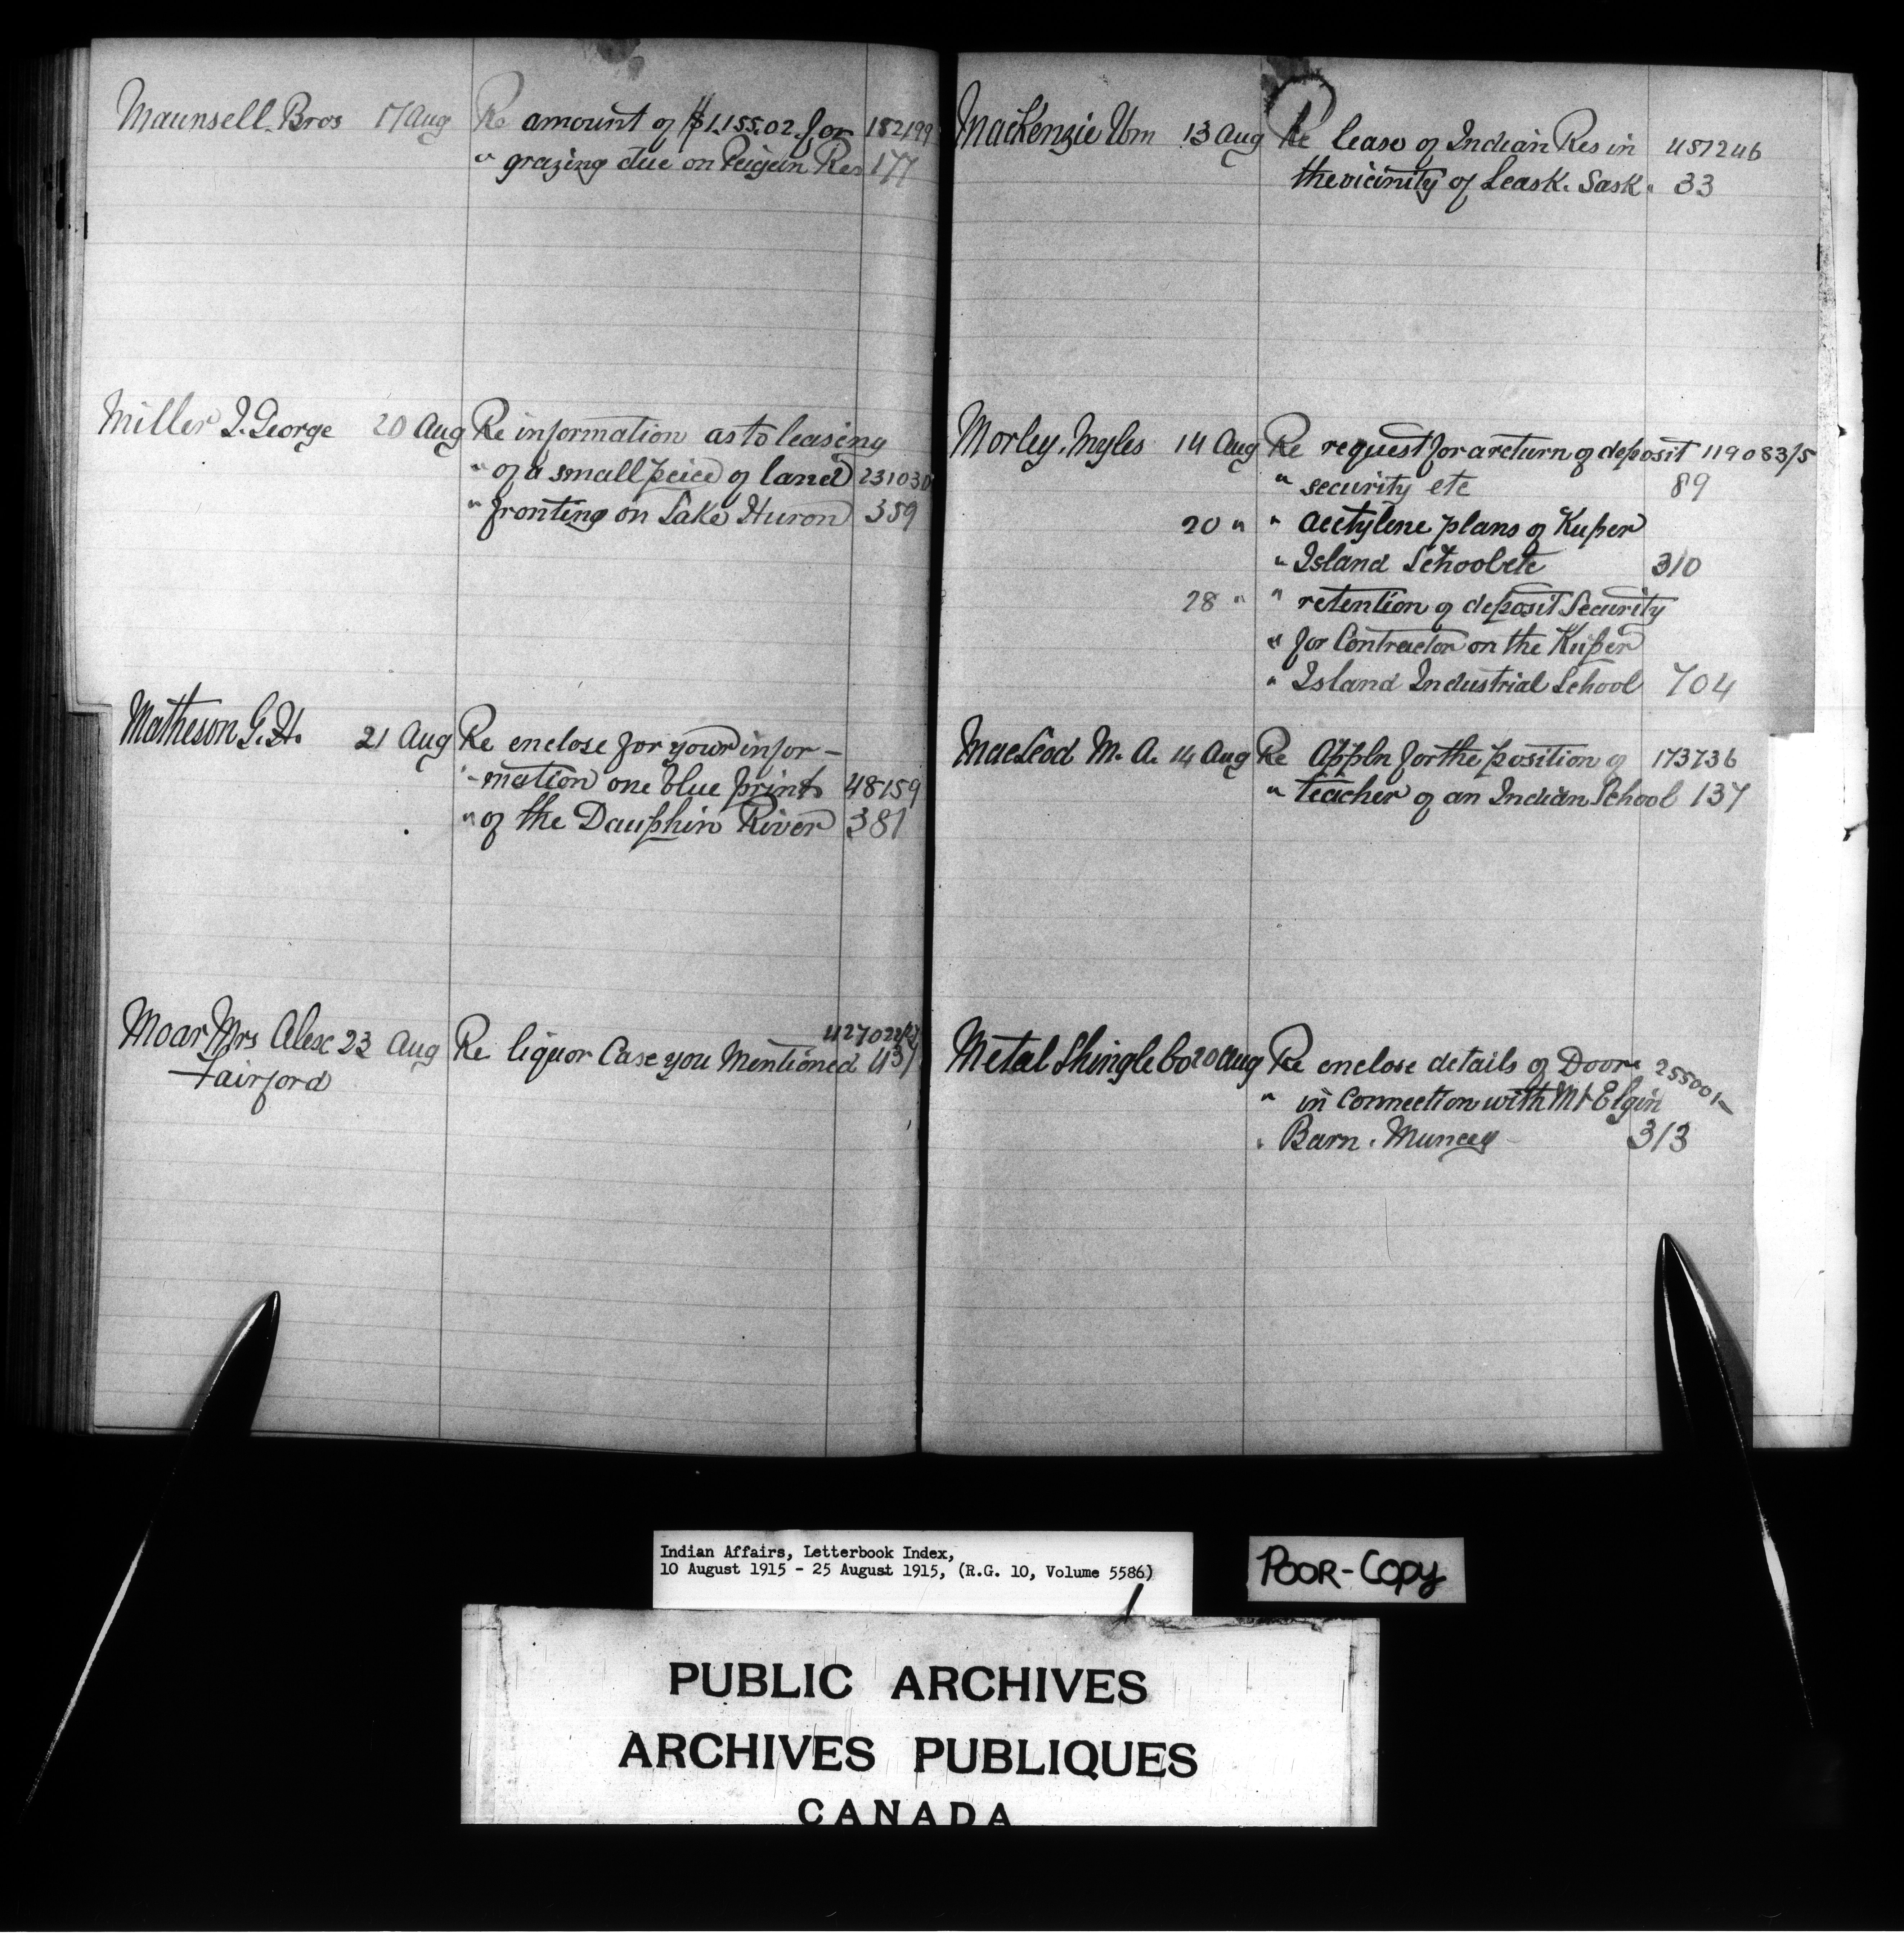 Maunsell Bros 17 Aug Re amount of $1,155.02 for 182199
" grazing due on Peigan Res 177
Miller J. George 20 Aug Re information as to leasing
" of a small peice of land 231030
" fronting on Lake Huron 359
Matheson G. H. 21 Aug Re enclose for your infor-
"-mation one blue print 48159
" of the Dauphin River 381
Moar Mrs Alex 23 Aug Re liquor Case you Mentioned 437
Fairford
MacKenzie Wm 13 Aug Re lease of Indian Res in 457246
the vicinity of Leask. Sask. 33
Morley, Myles 14 Aug Re request for a return of deposit 119083/5
" security etc 89
20 " " acetylene plans of Kuper
" Island School etc 310
28 " " retention of deposit Security
" for Contractor on the Kuper
" Island Industrial School 704
MacLeod M. A. 14 Aug Re Appln for the position of 173736
" teacher of an Indian School 137
Metal Shingle Co 20 Aug Re enclose details of Doors 255001-
" in Connection with Mt Elgin
" Barn. Muncey 313
Indian Affairs, Letterbook Index,
10 August 1915 - 25 August 1915, (R.G. 10, Volume 5586)
POOR-COPY
PUBLIC ARCHIVES
ARCHIVES PUBLIQUES
CANADA